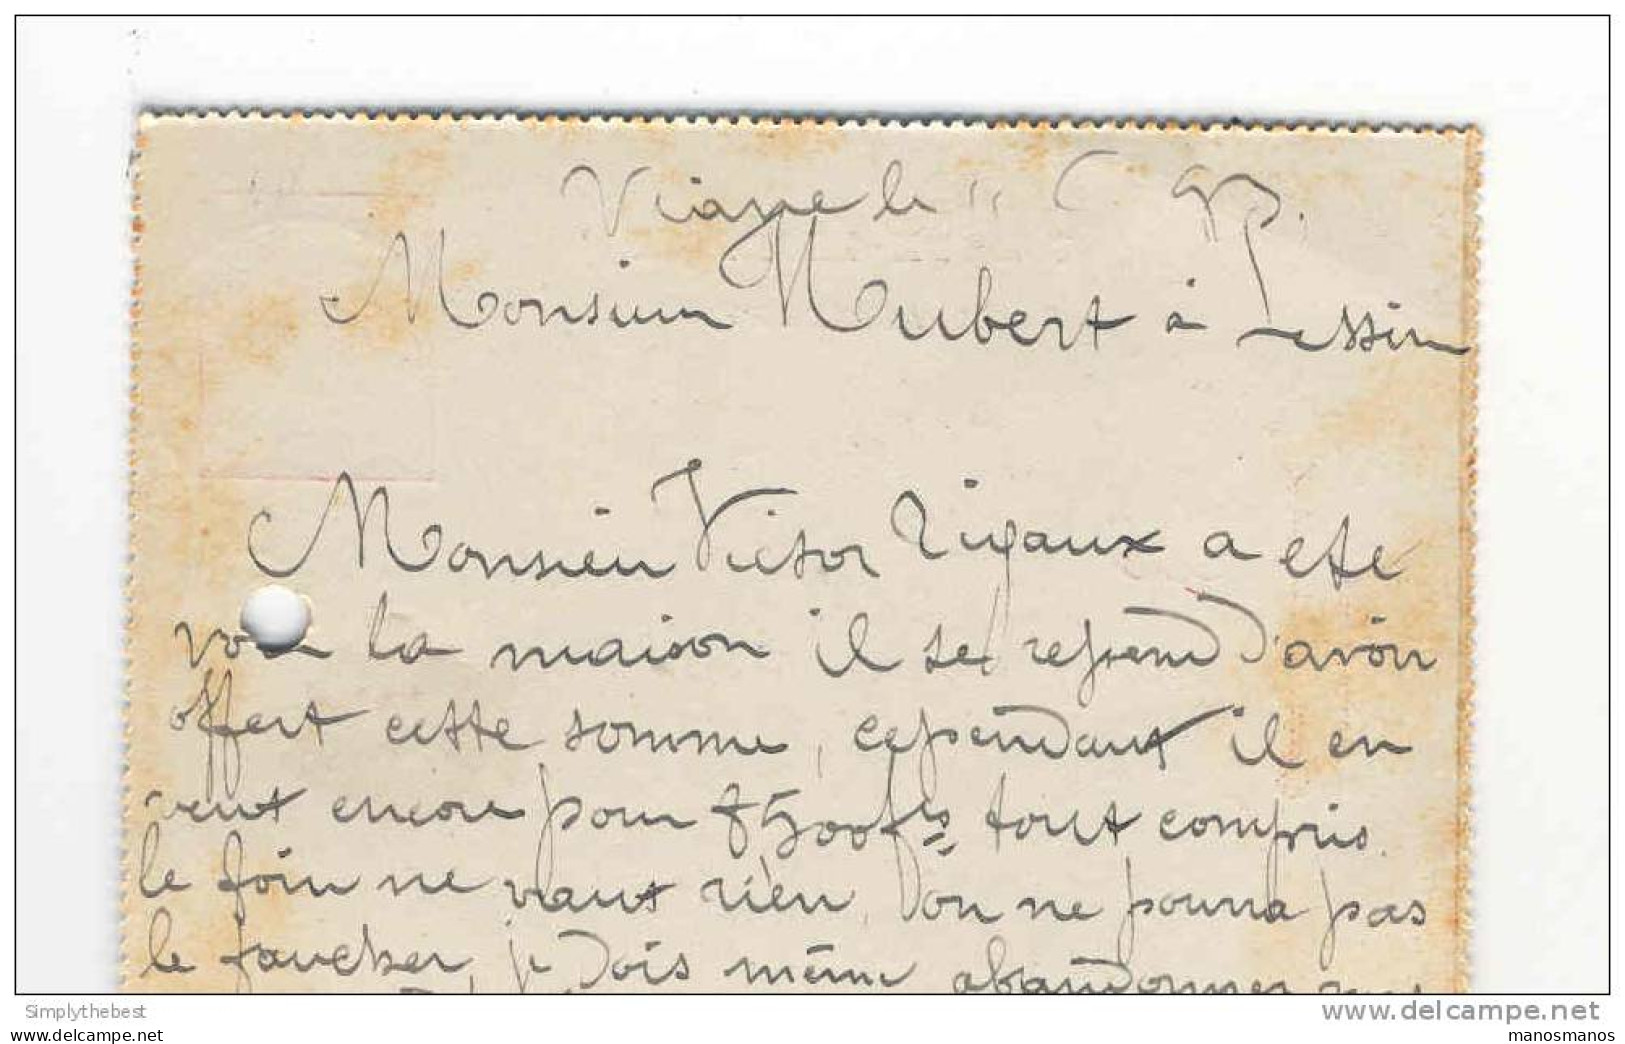 Viane le 11 6 93.
Monsieur Hubert à Lessin
Monsieur Victor Rigaux a eté
voir la maison il se repend d'avoir
offert cette somme, cependant il en
veut encore pour 8500 frs tout compris.
le foin ne vaut rien, l'on ne pourra pas
le faucher, je dois même abandonner
Simplythebest
delcampe.net
Simplythebest
manosmanos